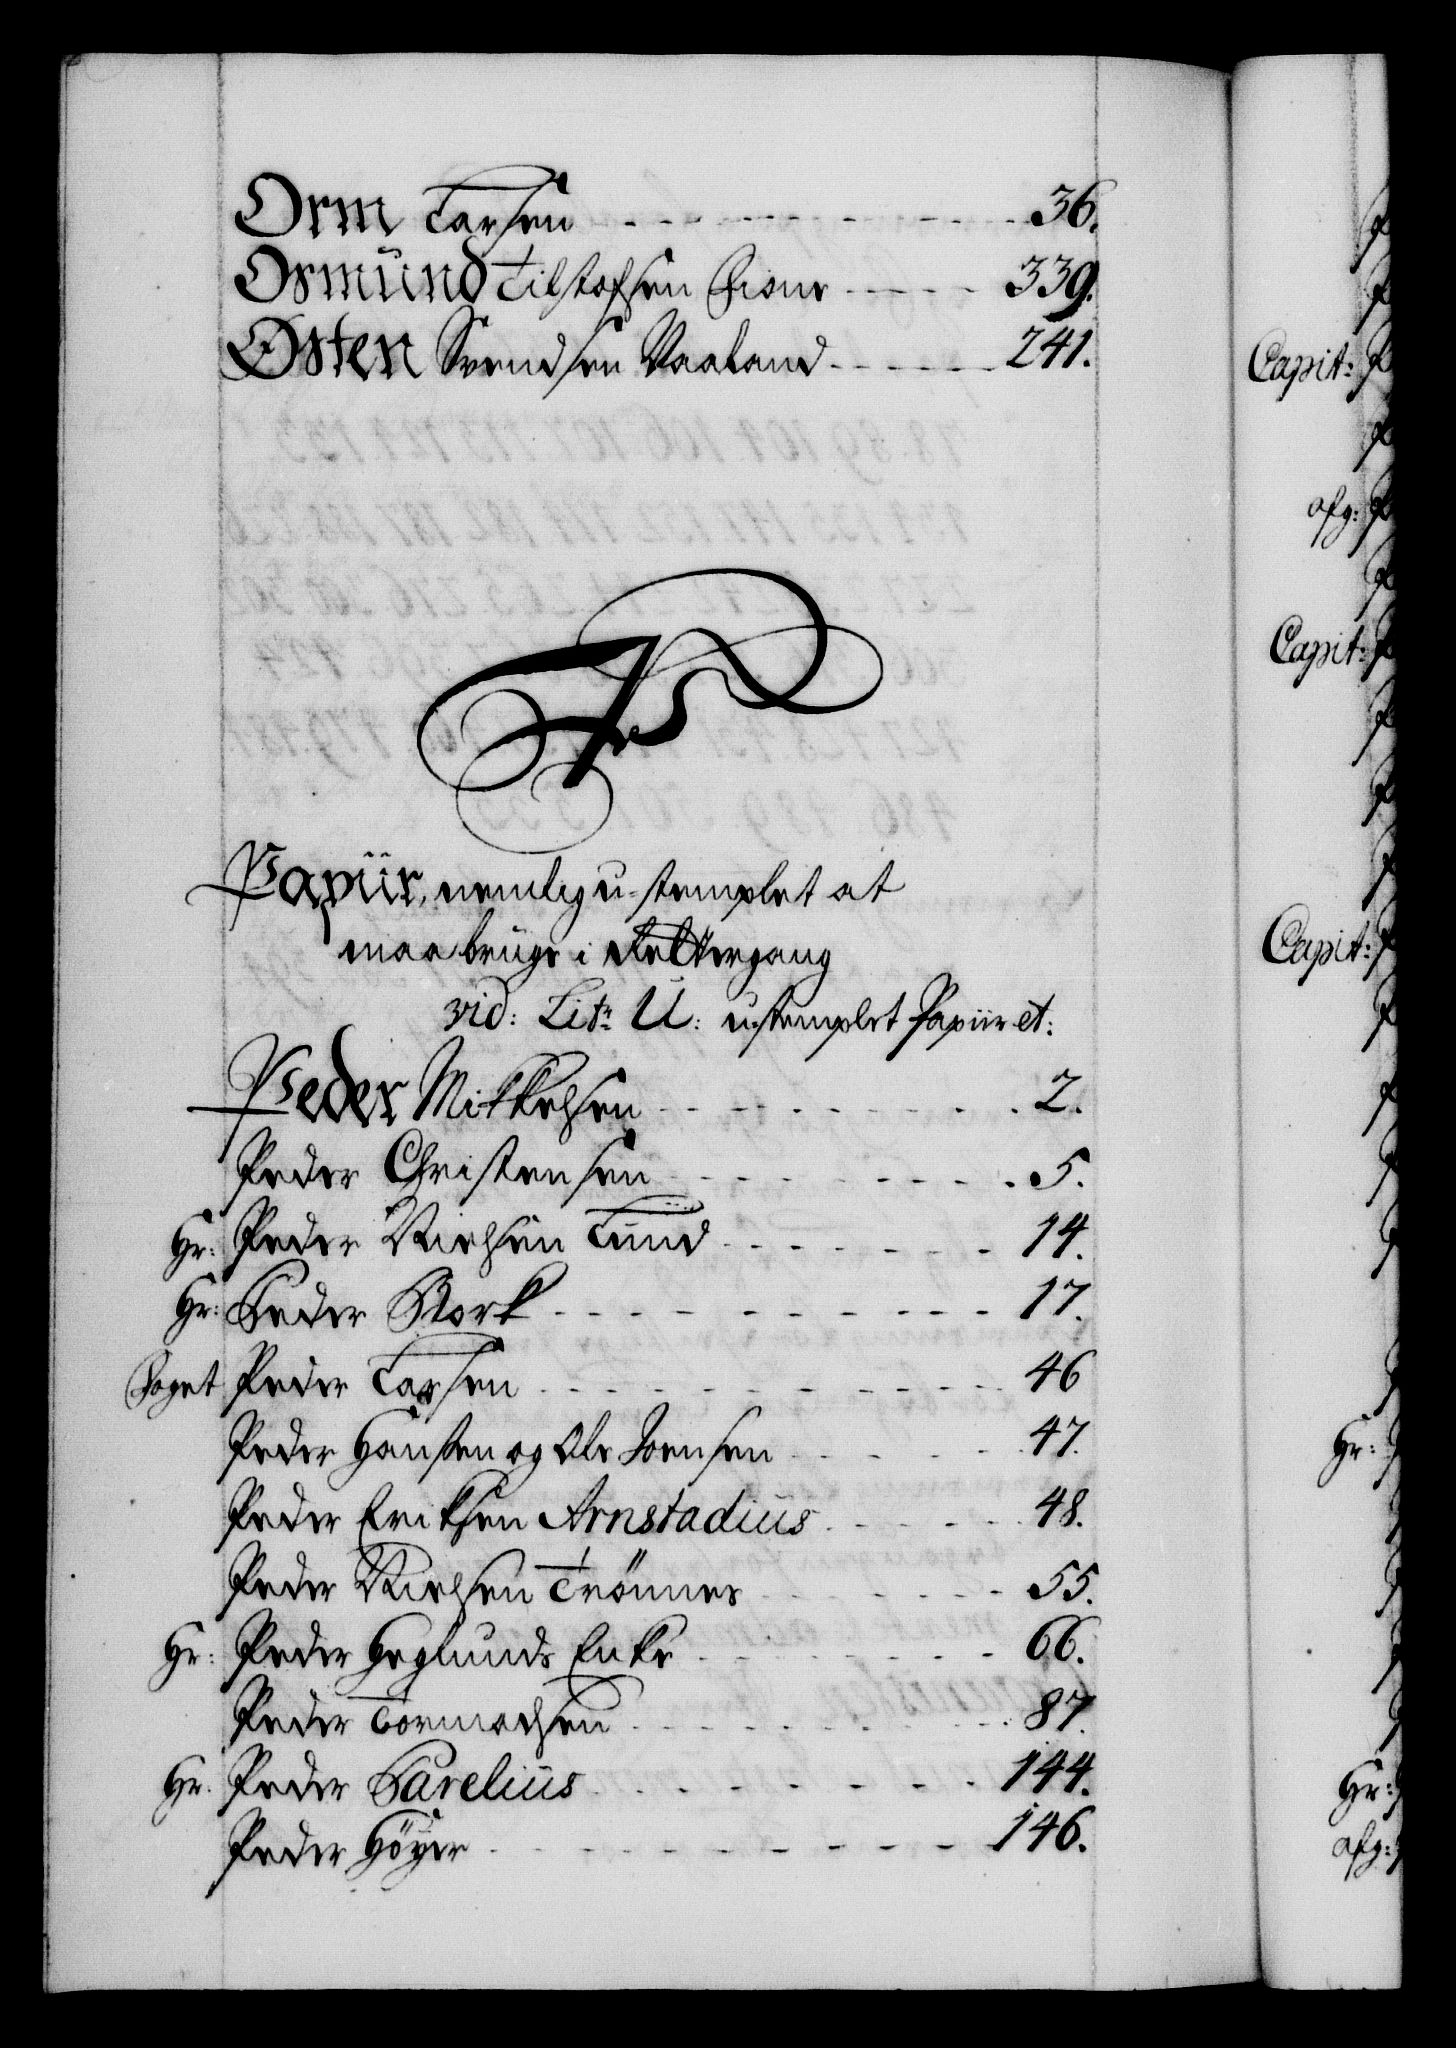 Orm Larsen - - - - - - - - - - - 36.
Osmund Tilstofsen - - - - - 339.
Østen Svendsen Vaaland - - - - - 241.
P
Papiir, nemlig u-stemplet at
maa bruge i Rettergang
vid: Litr U: ustemplet Papiir et:
Peder Mikkelsen - - - - - - - - - - 2.
Peder Christensen - - - - - - - - - 5.
Hr: Peder Nielsen Lund - - - - - - - 14.
Hr: Peder Stork - - - - - - - - - - - 17.
Foget Peder Larsen - - - - - - - - - - - 46
Peder Hansen og Ole Joensen - - - - 47.
Peder Eriksen Arnstadius - - - - - - 48.
Peder Nielsen Trönnes - - - - - - - 55.
Hr: Peder Heglunds Enke - - - - - - - - 66.
Peder Tormodsen - - - - - - - - - 87.
Hr. Peder Parelius - - - - - - - - 144.
Peder Höyer - - - - - - - - - - 146.
Capit:
afg:
Capit:
Capit:
Hr:
Hr:
afg: